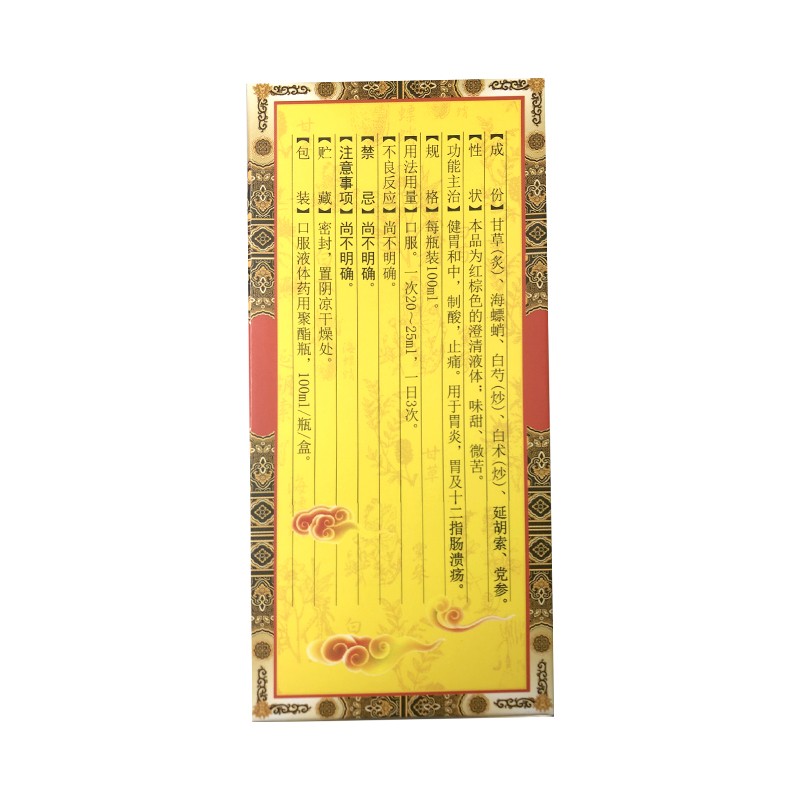 【成份】甘草(炙)、海螵蛸、白芍(炒)、白术(炒)、延胡索、党参。
【性状】本品为红棕色的澄清液体；味甜、微苦。
【功能主治】健胃和中，制酸，止痛。用于胃炎，胃及十二指肠溃疡。
【规格】每瓶装100ml。
【用法用量】口服。一次20～25ml，一日3次。
【不良反应】尚不明确。
【禁忌】尚不明确。
【注意事项】尚不明确。
【贮藏】密封，置阴凉干燥处。
【包装】口服液体药用聚酯瓶，100ml/瓶/盒。
甘草